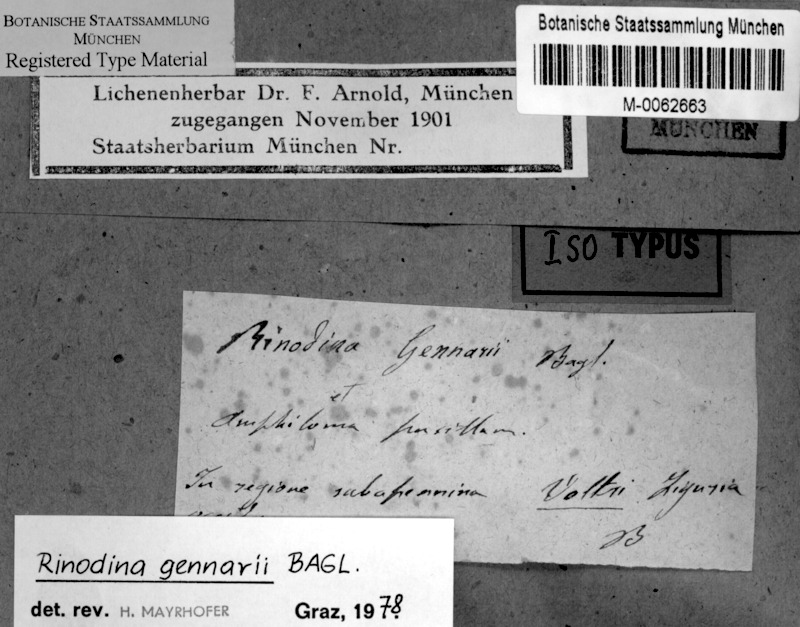 BOTANISCHE STAATSSAMMLUNG
MÜNCHEN
Registered Type Material
Botanische Staatssammlung München
M-0062663
Lichenenherbar Dr. F. Arnold, München
zugegangen November 1901
Staatsherbarium München Nr.
MÜNCHEN
ISO TYPUS
Rinodina Gennarii Bagl.
et
Amphiloma pusillum.
In regione subapennina Voltri Liguria
B
Rinodina gennarii BAGL.
det. rev. H. MAYRHOFER Graz, 1978